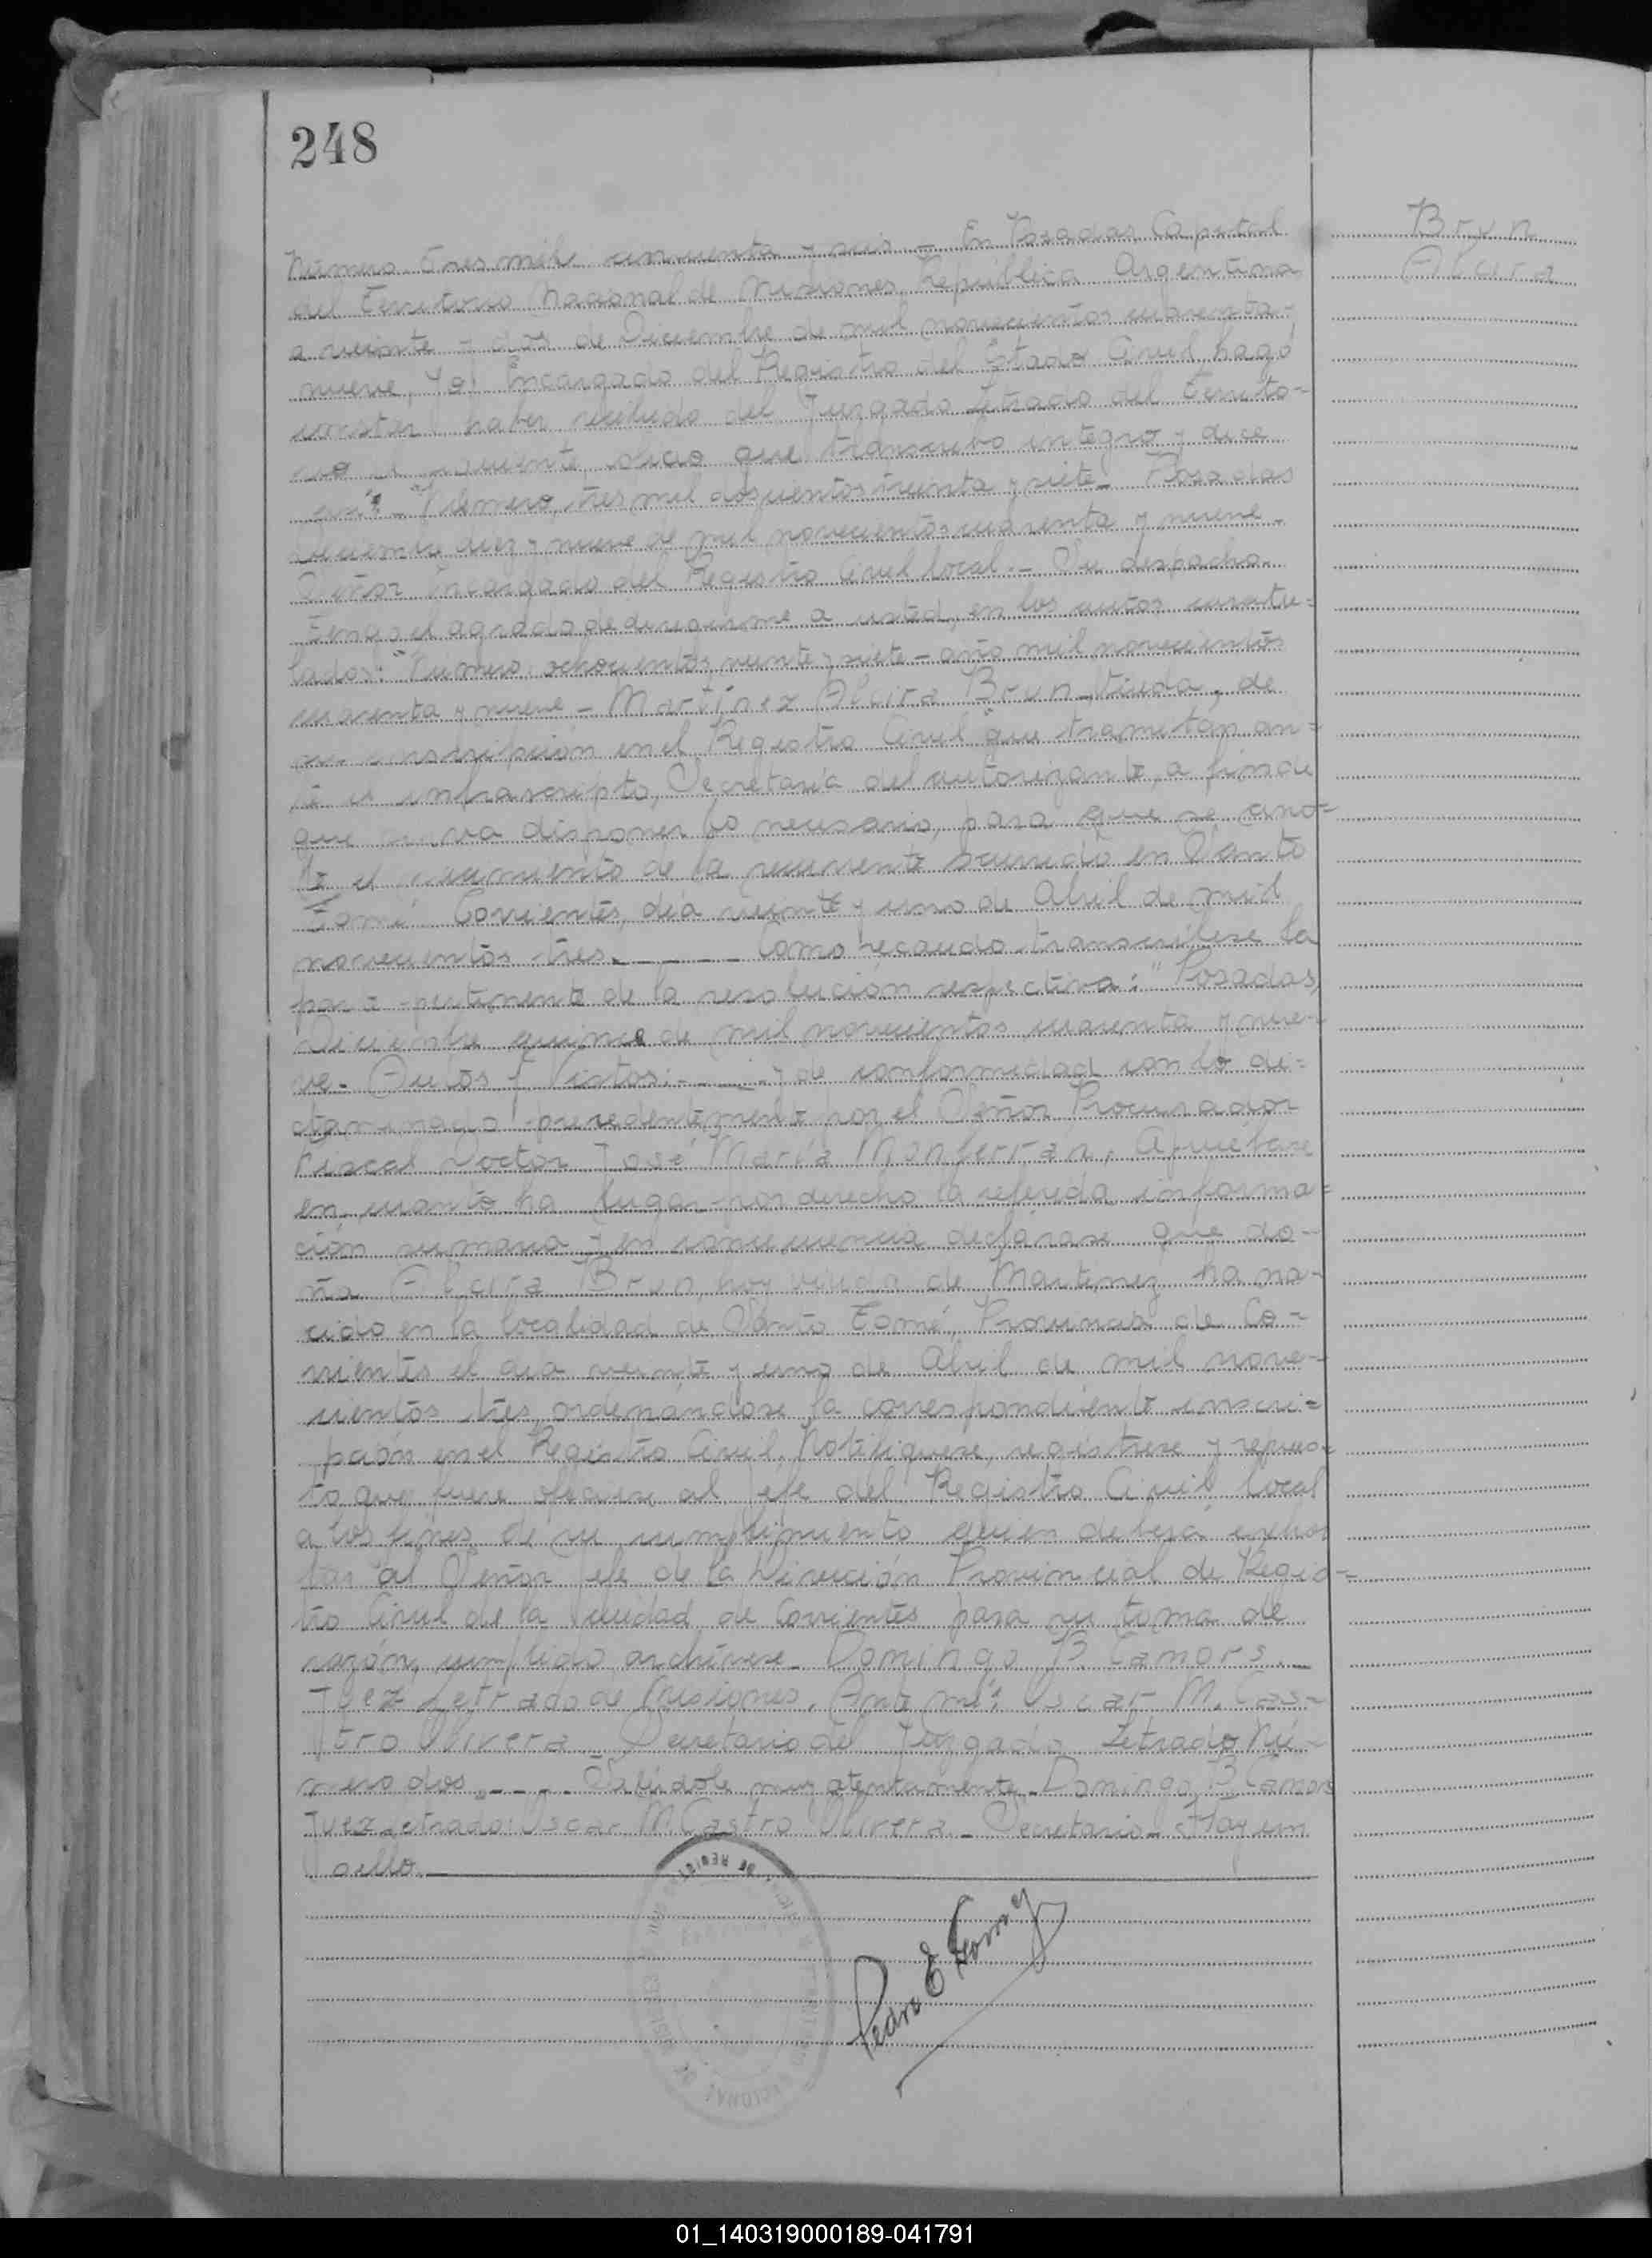 248
Brun
Alcira
Número tres mil cincuenta y seis - En Posadas Capital
del Territorio Nacional de Misiones, República Argentina
a veinte y dos de Diciembre de mil novecientos cuarenta-
nueve, Yo! Encargado del Registro del Estado Civil, hago
constar haber recibido del Juzgado Letrado del Territo-
rio el siguiente oficio que transcribo integro y dice
así: - "Número, tres mil doscientos treinta y siete - Posadas
Diciembre diez y nueve de mil novecientos cuarenta y nueve -
Señor Encargado del Registro Civil local. - Su despacho -
Tengo el agrado de dirigirme a usted, en los autos caratu=
lados: "Número, ochocientos veinte y siete - año mil novecientos
cuarenta y nueve - Martínez Alcira Brun Viuda, de
su inscripción en el Registro Civil" que tramitan an=
te el infrascripto, Secretaría del autorizante, a fin de
que se sirva disponer lo necesario, para que se ano=
te el nacimiento de la recurrente ocurrido en Santo
Tomé Corrientes, día veinte y uno de Abril de mil
novecientos tres. - - - - Como recaudo transcríbese la
parte pertinente de la resolución respectiva: "Posadas,
Diciembre quince de mil novecientos cuarenta y nue-
ve - Autos y Vistos: - - - y de conformidad con lo dic=
taminado precedentemente por el Señor Procurador
Fiscal Doctor José María Monferrán, Apruébase
en cuanto ha lugar por derecho la referida informa=
ción sumaria y en consecuencia declárase que do-
ña Alcira Brun, hoy viuda de Martinez, ha na-
cido en la localidad de Santo Tomé, Provincia de Co-
rrientes el dia veinte y uno de Abril de mil nove-
cientos tres, ordenándose la correspondiente inscri=
pción en el Registro Civil. Notifíquese, regístrese y repues-
to que fuere ofíciese al Jefe del Registro Civil local
a los fines de su cumplimiento quien deberá exhor
tar al Señor Jefe de la Dirección Provincial de Regis-
tro Civil de la Ciudad de Corrientes para su toma de
razón, cumplido archívese - Domingo B. Camors. -
Juez Letrado de Misiones. Ante mí: Oscar M. Cas-
tro Olivera - Secretario del Juzgado Letrado Nú-
mero dos. - - - - Salúdole muy atentamente - Domingo B. Camors
Juez Letrado: Oscar M. Castro Olivera. - Secretario - Hay un
sello.
Pedro E
01_140319000189-041791